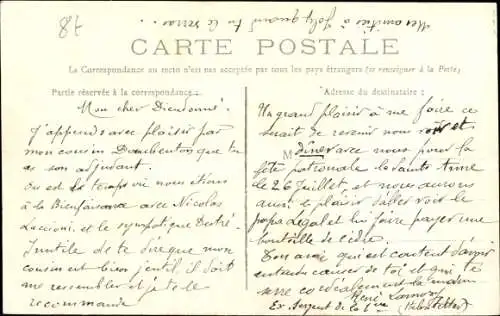 78
Mes amitiés à Joly quand tu le verras...
CARTE POSTALE
La Correspondance au recto n'est pas acceptée par tous les pays étrangers (se renseigner à la Poste)
Partie réservée à la correspondance.
Mon cher Dieudonné.
J'apprends avec plaisir par
mon cousin Daubenton que tu
as son adjudant.
Où est le temps où nous étions
à la Bienfaisance avec Nicolas
Luccioni, et le sympathique
Inutile de te dire que mon
cousin est bien gentil, il doit
me ressembler et je te le
recommande
Adresse du destinataire :
Un grand plaisir à me faire ce
serait de revenir nous voir et
M dîner avec nous pour la
fête patronale la Sainte Anne
le 26 Juillet, et nous aurons
aussi le plaisir d'aller voir le
papa Legal et lui faire payer une
bouteille de cidre.
Ton ami qui est content d'avoir
entendu causer de toi et qui te
serre cordialement la main
René
Ex Sergent de la